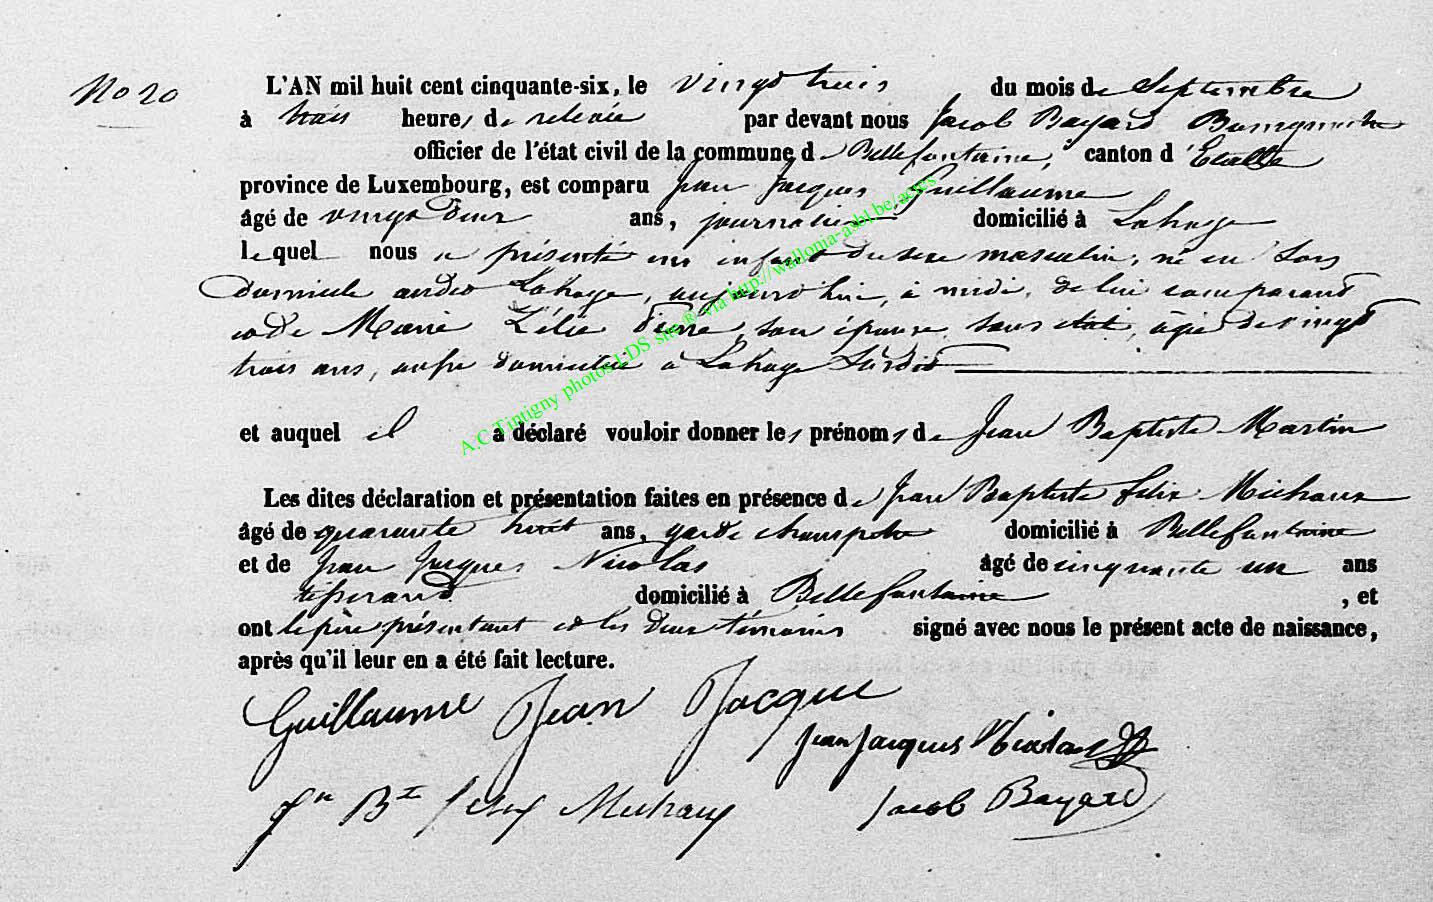 No 20
L'AN mil huit cent cinquante-six, le vingt trois du mois de Septembre
à trois heures de relevée par devant nous Jacob Bayard Bourgmestre
officier de l'état civil de la commune de Bellefontaine, canton d'Etalle
province de Luxembourg, est comparu Jean Jacques Guillaume
âgé de vingt deux ans, journalier domicilié à Lahage
lequel nous a présenté un enfant du sexe masculin, né en son
domicile audit Lahage, aujourd'hui, à midi, de lui comparant
et de Marie son épouse, sans état, âgée de vingt
trois ans, aussi domiciliée à Lahage susdit
et auquel il a déclaré vouloir donner les prénoms de Jean Baptiste Martin
Les dites déclaration et présentation faites en présence de Jean Baptiste felix Michaux
âgé de quarante huit ans, garde champetre domicilié à Bellefontaine
et de Jean Jacques Nicolas âgé de cinquante un ans
tisserand domicilié à Bellefontaine , et
ont le père présentant et les deux témoins signé avec nous le présent acte de naissance,
après qu'il leur en a été fait lecture.
Guillaume Jean Jacque
Jean Jacques Nicolas
Jn Bte felix Michaux
Jacob Bayard
A.C Tintigny photos LDS site® via http://wallonia-asbl.be/actes